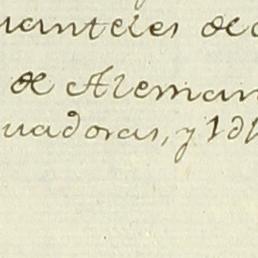 uanteles de
de Aleman
uadoras, y 1 d